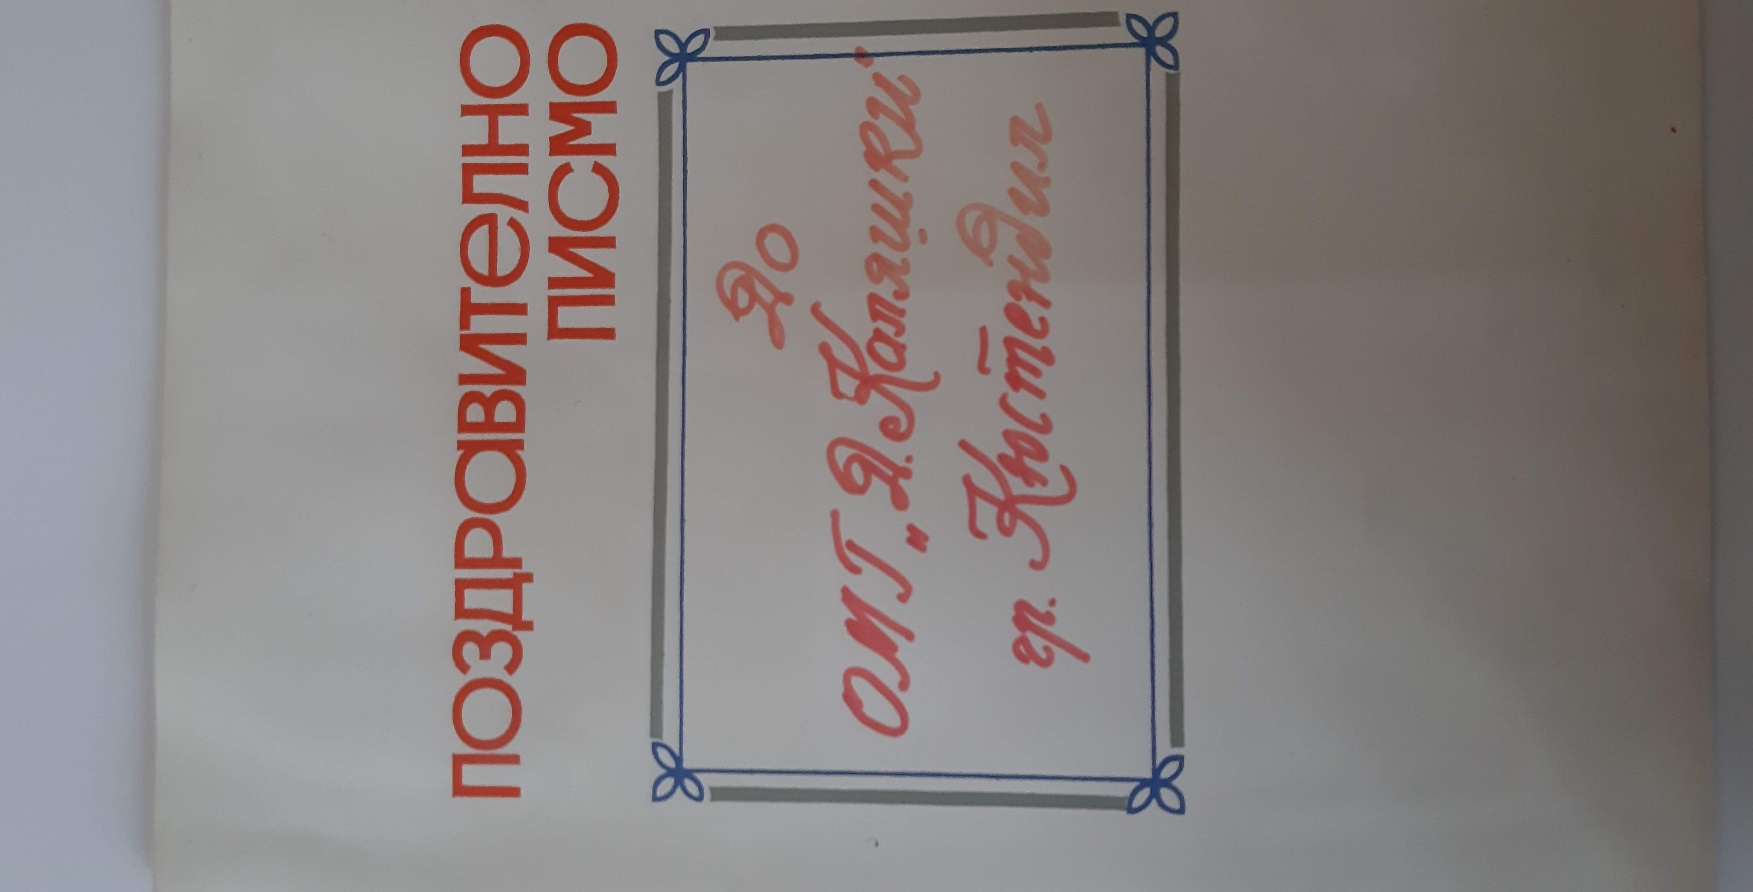 ПОЗДРАВИТЕЛНО
ПИСМО
До
ОМТ „Д. Каляшки“
гр. Кюстендил